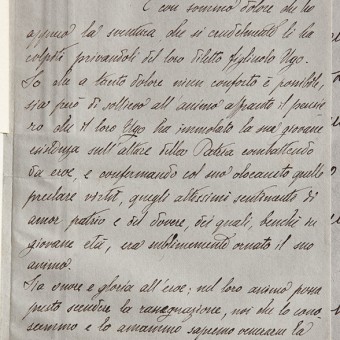 È con sommo dolore che ho
appreso la sventura che sì crudelmente li ha
colpiti privandoli del loro diletto figliuolo Ugo.
So che a tanto dolore niun conforto è possibile,
sia però di sollievo all'animo affranto il pensie
ro che il loro Ugo ha immolato la sua giovane
esistenza sull'altare della Patria combattendo
da eroe, e confermando col suo olocausto quelle
preclare virtù, quegli altissimi sentimenti di
amor patrio e del dovere, dei quali, benchè in
giovane età, era sublimemente ornato il suo
animo.
Sia onore e gloria all'eroe; nel loro animo possa
presto scendere la rassegnazione, noi che lo cono
scemmo e lo amammo sapremo venerarne la